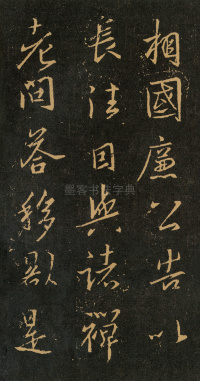 相國廉公告以
長往因與諸禪
老問答移是
墨客书法字典